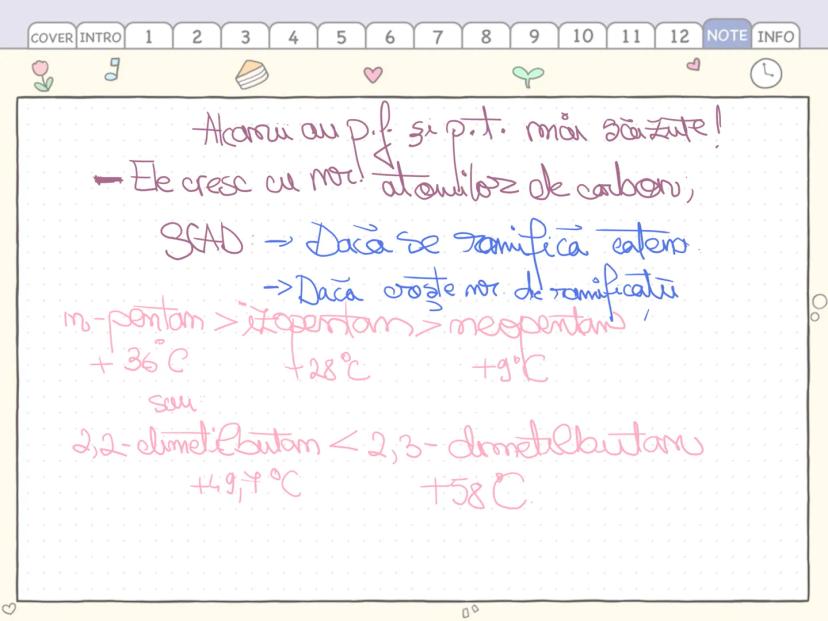 COVER INTRO 1 2 3 4 5 6 7 8 9 10 11 12 NOTE INFO
Alcanii au p.f. și p.t. mai scăzute!
- Ele cresc cu nr. atomilor de carbon;
SCAD: → Dacă se ramifică catena
→ Dacă crește nr. de ramificații
n-pentan > izopentan > neopentan
+ 36°C +28°C +9°C
sau
2,2-dimetilbutan < 2,3-dimetilbutan
+49,7°C +58°C